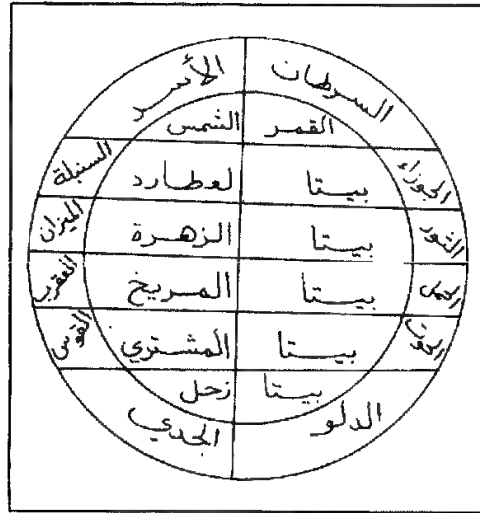 السرطان الأسد
القمر الشمس
الجوزاء بيتا لعطارد السنبلة
الثور بيتا الزهرة الميزان
الحمل بيتا المريخ العقرب
الحوت بيتا المشتري القوس
بيتا زحل
الدلو الجدي